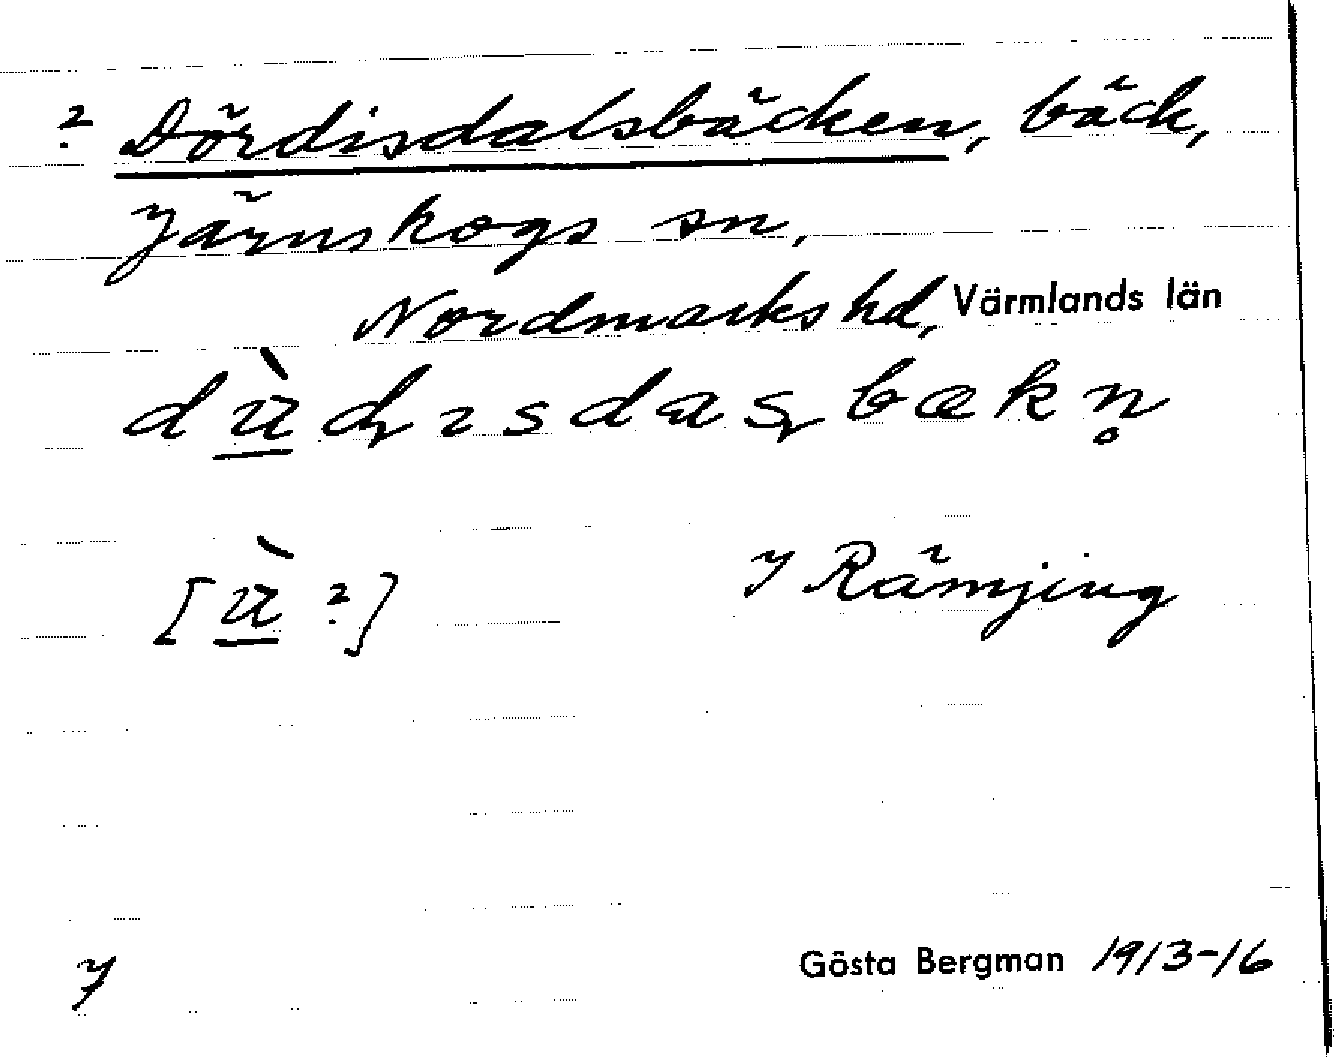 ? Dördisdalsbäcken, bäck,
Järnskogs sn,
Nordmarks hd, Värmlands län
dù̲ɖɩsdaʂbækn̥
[ù̲ ?] I Rämjing
7 Gösta Bergman 1913-16